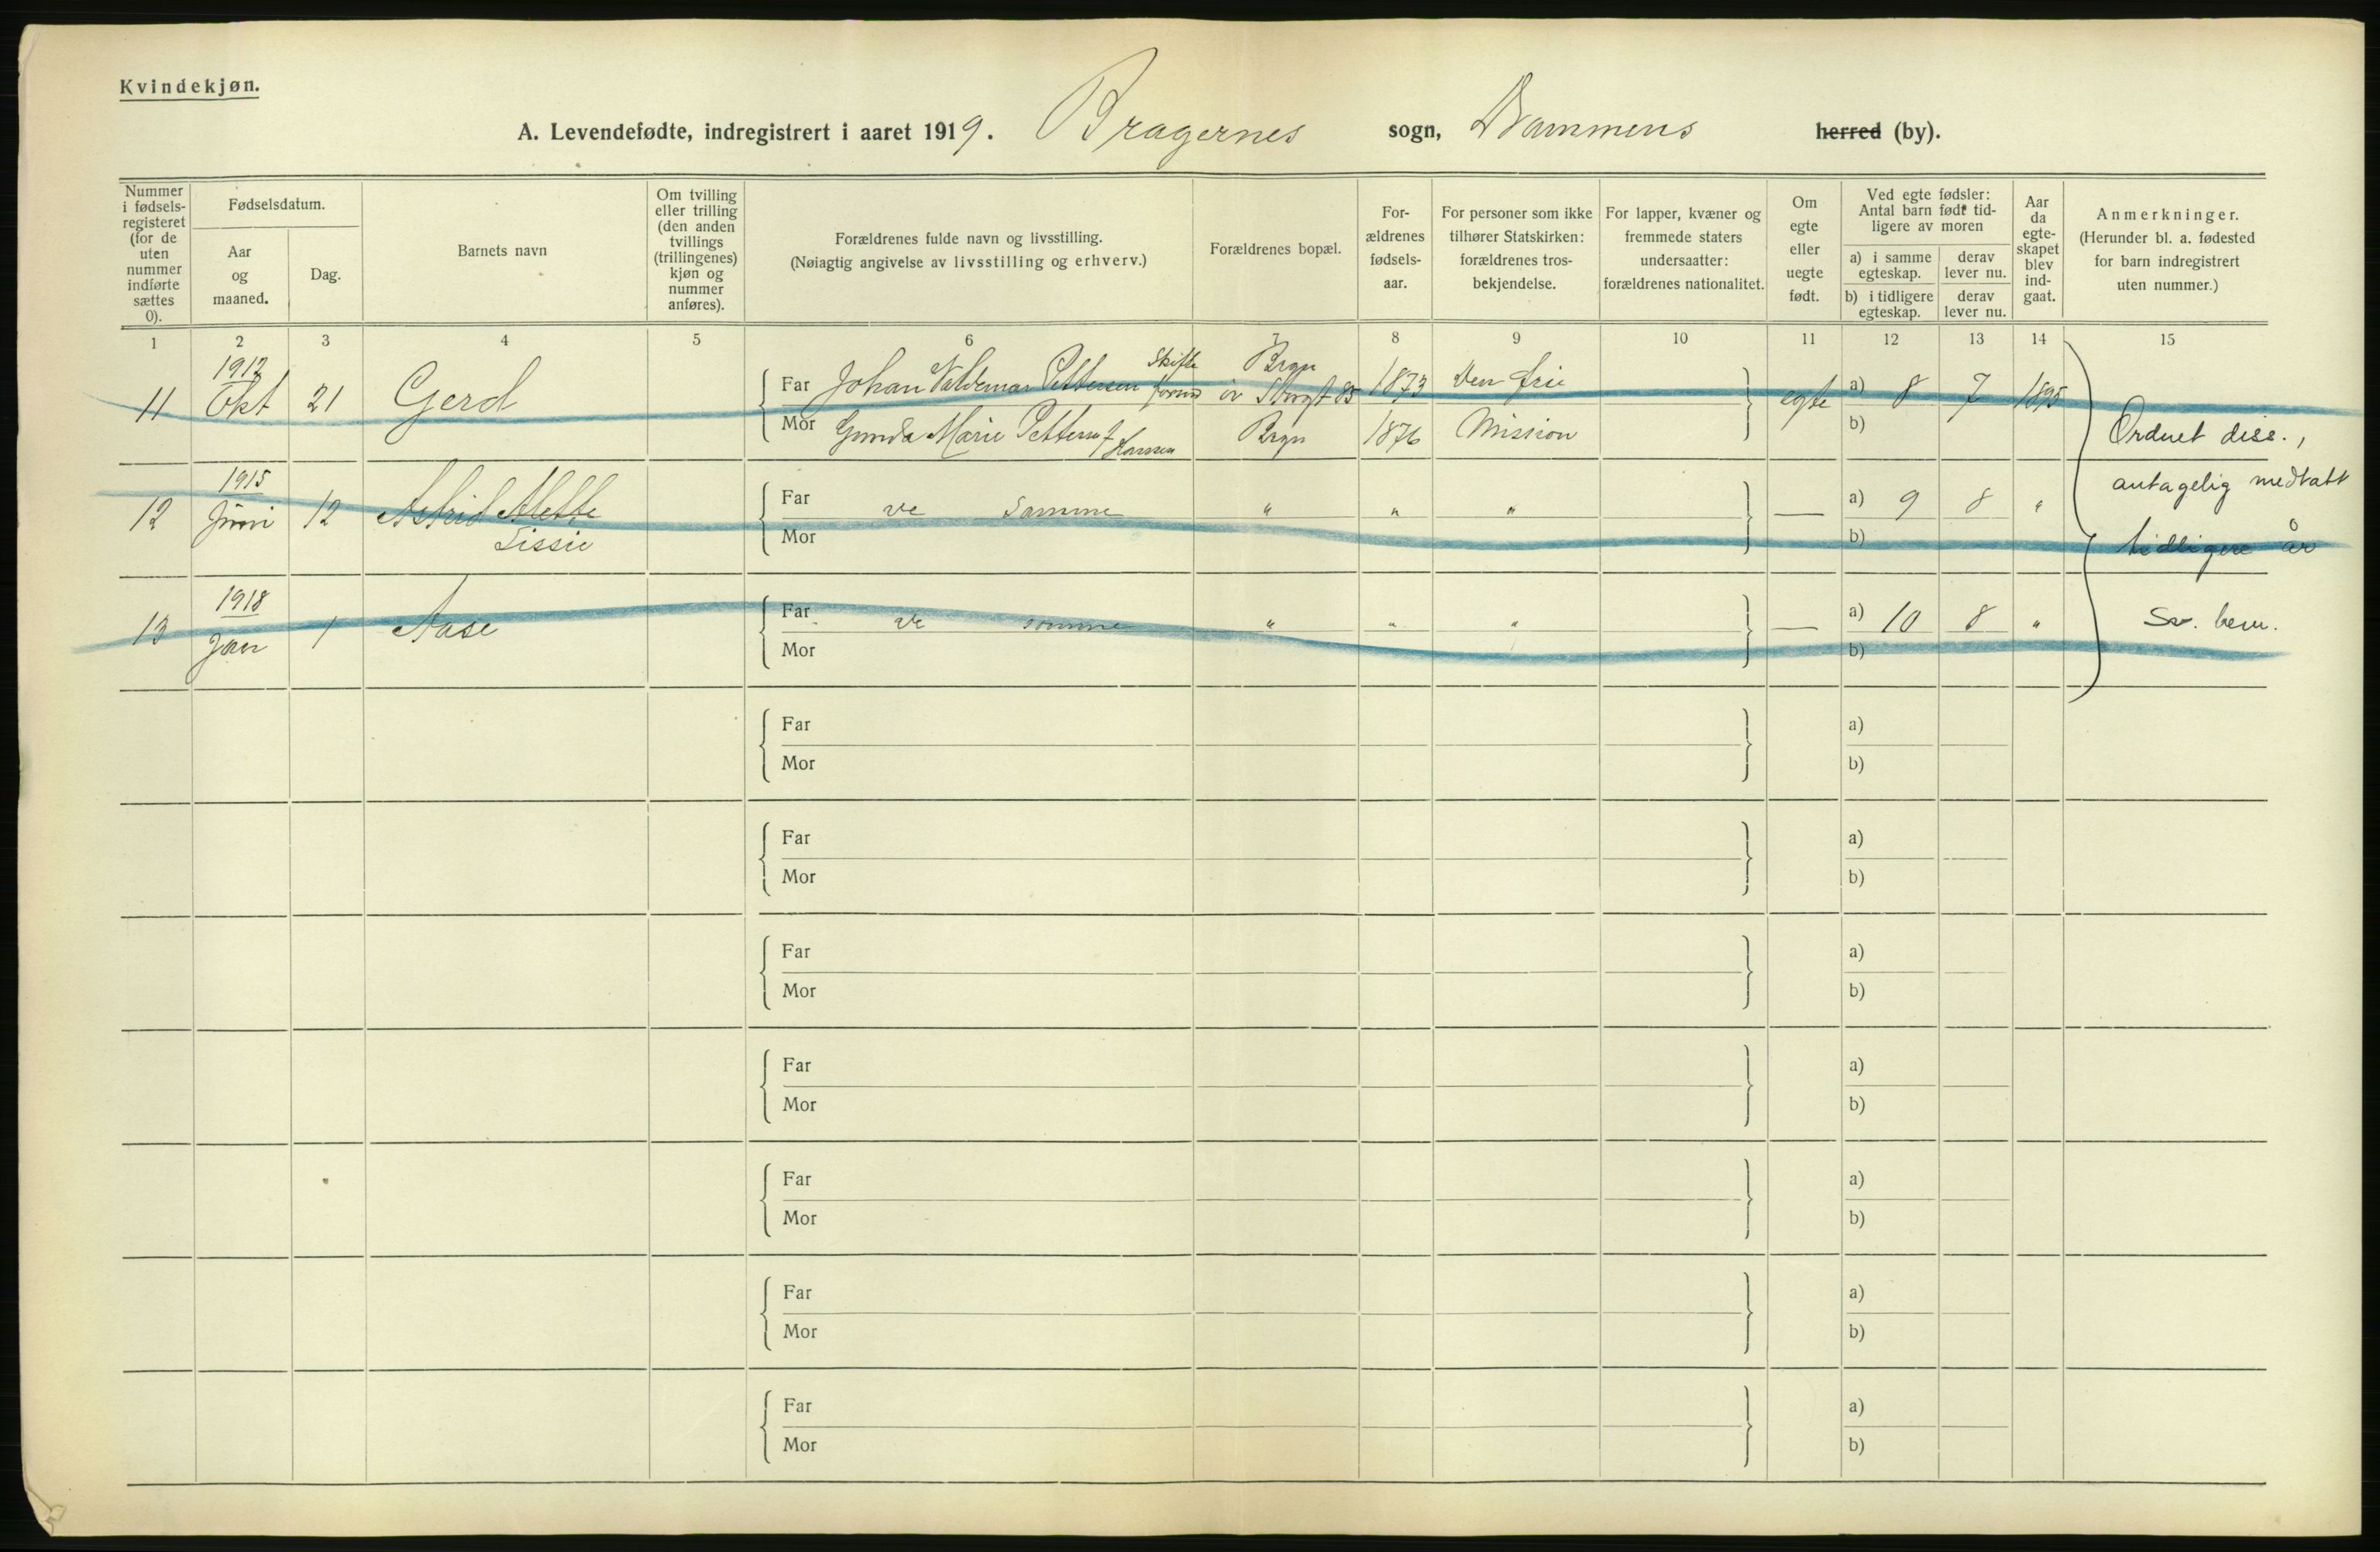 Kvindekjøn.
A. Levendefødte, indregistrert i aaret 1919. Bragernes sogn, Drammens herred (by).
Nummer i fødsels-registeret (for de uten nummer indførte sættes 0).
Fødselsdatum.
Aar og maaned.
Dag.
Barnets navn
Om tvilling eller trilling (den anden tvillings (trillingenes) kjøn og nummer anføres).
Forældrenes fulde navn og livsstilling.
(Nøiagtig angivelse av livsstilling og erhverv.)
Forældrenes bopæl.
For-ældrenes fødsels-aar.
For personer som ikke tilhører Statskirken: forældrenes tros-bekjendelse.
For lapper, kvæner og fremmede staters undersaatter: forældrenes nationalitet.
Om egte eller uegte født.
Ved egte fødsler: Antal barn født tid-ligere av moren
a) i samme egteskap. derav lever nu.
b) i tidligere egteskap. derav lever nu.
Aar da egte-skapet blev ind-gaat.
Anmerkninger.
(Herunder bl. a. fødested for barn indregistrert uten nummer.)
1 2 3 4 5 6 7 8 9 10 11 12 13 14 15
11 1912 Okt 21 Gerd
Far Johan Valdemar Pettersen Skifte formd Brgn 1873 Den frie egte a) 8 7 1895
Mor Gunda Marie Petters f Hansen Brgn 1876 Mission b)
Ordnet diss.,
antagelig medtatt
tidligere år
Sv. bem.
12 1915 Juni 12 Astrid Alette Lissie
Far de samme " " " — a) 9 8 "
Mor b)
13 1918 Jan 1 Aase
Far de samme " " " — a) 10 8 "
Mor b)
Far a)
Mor b)
Far a)
Mor b)
Far a)
Mor b)
Far a)
Mor b)
Far a)
Mor b)
Far a)
Mor b)
Far a)
Mor b)